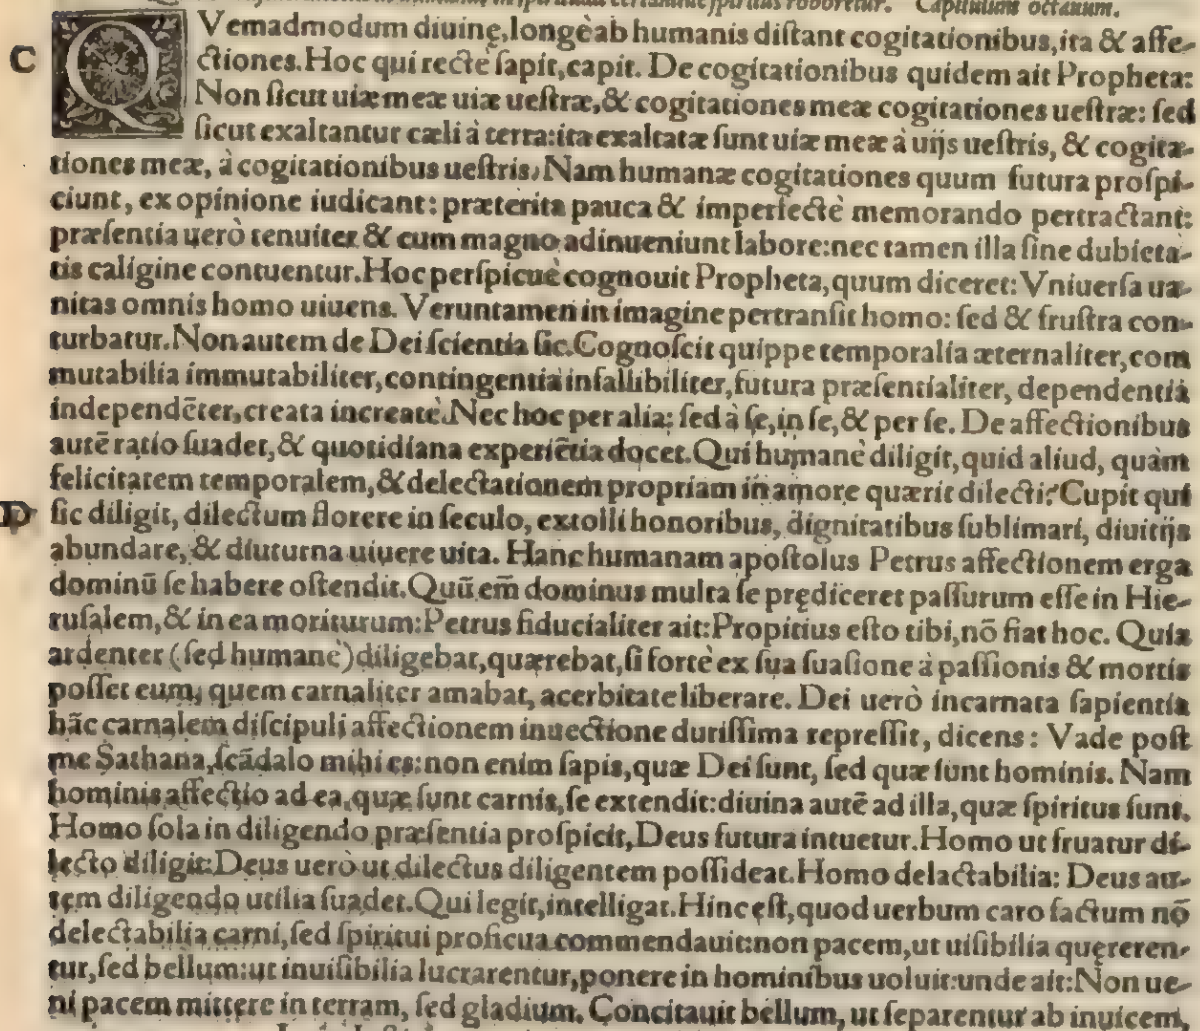 in spirituali certamine spiritus roboretur. Capitulum octauum.
C QVemadmodum diuinę, longè ab humanis distant cogitationibus, ita & affe-
ctiones. Hoc qui rectè sapit, capit. De cogitationibus quidem ait Propheta:
Non sicut uiæ meæ uiæ uestræ, & cogitationes meæ cogitationes uestræ: sed
sicut exaltantur cæli à terra: ita exaltatæ sunt uiæ meæ à uijs uestris, & cogita-
tiones meæ, à cogitationibus uestris. Nam humanæ cogitationes quum futura prospi-
ciunt, ex opinione iudicant: præterita pauca & imperfectè memorando pertractant:
præsentia uerò tenuiter & cum magno adinueniunt labore: nec tamen illa sine dubieta-
tis caligine contuentur. Hoc perspicuè cognouit Propheta, quum diceret: Vniuersa ua-
nitas omnis homo uiuens. Veruntamen in imagine pertransit homo: sed & frustra con-
turbatur. Non autem de Dei scientia sic. Cognoscit quippe temporalia æternaliter, com
mutabilia immutabiliter, contingentia infallibiliter, futura præsentialiter, dependentia
independēter, creata increatè. Nec hoc per alia: sed à se, in se, & per se. De affectionibus
autē ratio suadet, & quotidiana experiētia docet. Qui humanè diligit, quid aliud, quàm
felicitatem temporalem, & delectationem propriam in amore quærit dilecti? Cupit qui
D sic diligit, dilectum florere in seculo, extolli honoribus, dignitatibus sublimari, diuitijs
abundare, & diuturna uiuere uita. Hanc humanam apostolus Petrus affectionem erga
dominū se habere ostendit. Quū em̄ dominus multa se prędiceret passurum esse in Hie-
rusalem, & in ea moriturum: Petrus fiducialiter ait: Propitius esto tibi, nō fiat hoc. Quia
ardenter (sed humanè) diligebat, quærebat, si fortè ex sua suasione à passionis & mortis
posset eum, quem carnaliter amabat, acerbitate liberare. Dei uerò incarnata sapientia
hāc carnalem discipuli affectionem inuectione durissima repressit, dicens: Vade post
me Sathana, scādalo mihi es: non enim sapis, quæ Dei sunt, sed quæ sunt hominis. Nam
hominis affectio ad ea, quæ sunt carnis, se extendit: diuina autē ad illa, quæ spiritus sunt.
Homo sola in diligendo præsentia prospicit, Deus futura intuetur. Homo ut fruatur di-
lecto diligit: Deus uerò ut dilectus diligentem possideat. Homo delactabilia: Deus au-
tem diligendo utilia suadet. Qui legit, intelligat. Hinc ęst, quod uerbum caro factum nō
delectabilia carni, sed spiritui proficua commendauit: non pacem, ut uisibilia quęreren-
tur, sed bellum: ut inuisibilia lucrarentur, ponere in hominibus uoluit: unde ait: Non ue-
ni pacem mittere in terram, sed gladium. Concitauit bellum, ut separentur ab inuicem,